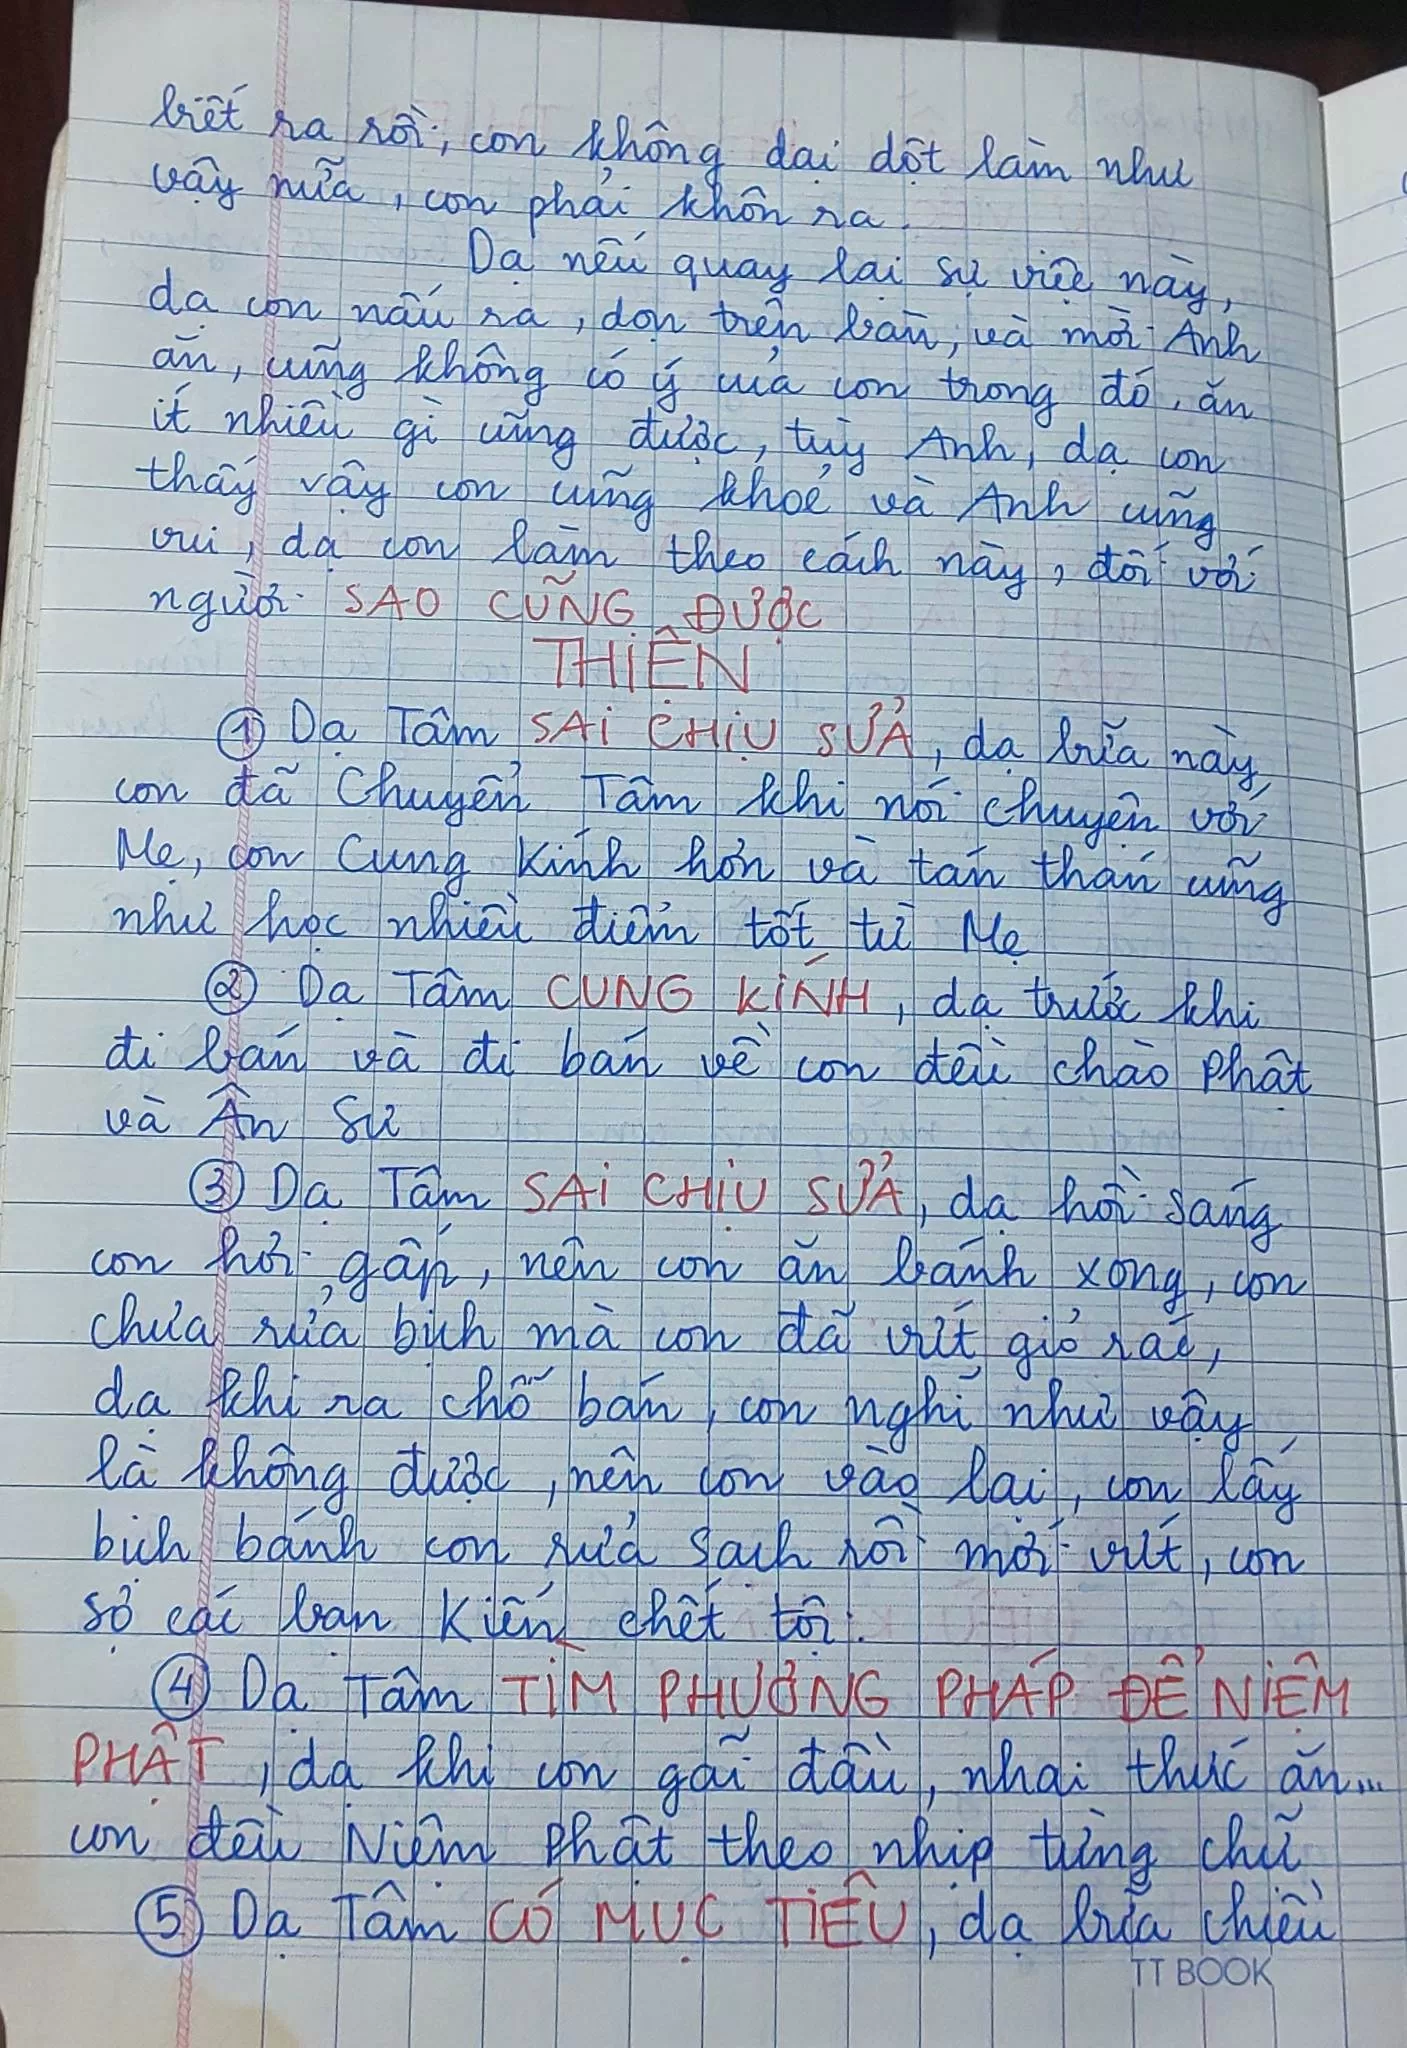 biết ra rồi, con không dại dột làm như
vậy nữa, con phải khôn ra.
Dạ nếu quay lại sự việc này,
dạ con nấu ra, dọn trên bàn, và mời Anh
ăn, cũng không có ý của con trong đó, ăn
ít nhiều gì cũng được, tùy Anh, dạ con
thấy vậy con cũng khoẻ và Anh cũng
vui, dạ con làm theo cách này, đối với
người SAO CŨNG ĐƯỢC
THIỆN
① Dạ Tâm SAI CHỊU SỬA, dạ bữa nay,
con đã Chuyển Tâm khi nói chuyện với
Mẹ, con Cung Kính hơn và tán thán cũng
như học nhiều điểm tốt từ Mẹ
② Dạ Tâm CUNG KÍNH, dạ trước khi
đi bán và đi bán về con đều chào Phật
và Ân Sư
③ Dạ Tâm SAI CHỊU SỬA, dạ hồi sáng
con hơi gấp, nên con ăn bánh xong, con
chưa rửa bịch mà con đã vứt giỏ rác,
dạ khi ra chỗ bán, con nghĩ như vậy
là không được, nên con vào lại, con lấy
bịch bánh con rửa sạch rồi mới vứt, con
sợ các bạn Kiến chết tội.
④ Dạ Tâm TÌM PHƯƠNG PHÁP ĐỂ NIỆM
PHẬT, dạ khi con gãi đầu, nhai thức ăn...
con đều Niệm Phật theo nhịp từng chữ
⑤ Dạ Tâm CÓ MỤC TIÊU, dạ bữa chiều
TT BOOK